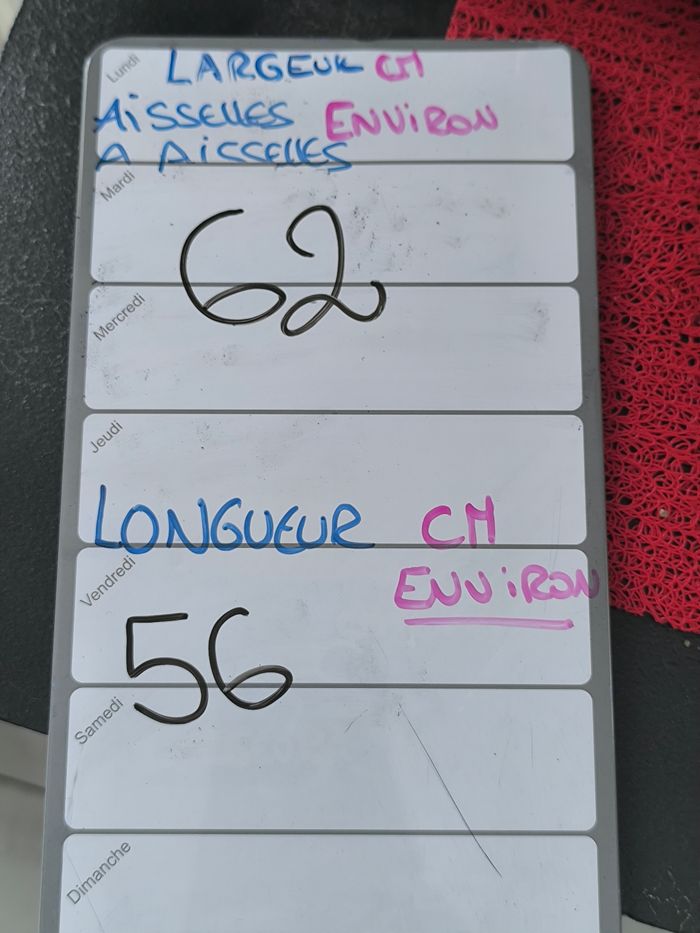 Lundi
LARGEUR CM
AiSSELLES ENViRON
A AiSSELLES
Mardi
62
Mercredi
Jeudi
LONGUEUR CM
Vendredi
ENViRON
56
Samedi
Dimanche